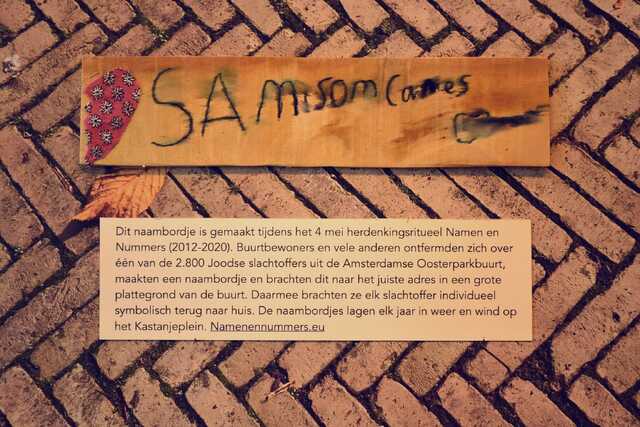 SAmison Cannes
Dit naambordje is gemaakt tijdens het 4 mei herdenkingsritueel Namen en
Nummers (2012-2020). Buurtbewoners en vele anderen ontfermden zich over
één van de 2.800 Joodse slachtoffers uit de Amsterdamse Oosterparkbuurt,
maakten een naambordje en brachten dit naar het juiste adres in een grote
plattegrond van de buurt. Daarmee brachten ze elk slachtoffer individueel
symbolisch terug naar huis. De naambordjes lagen elk jaar in weer en wind op
het Kastanjeplein. Namenennummers.eu